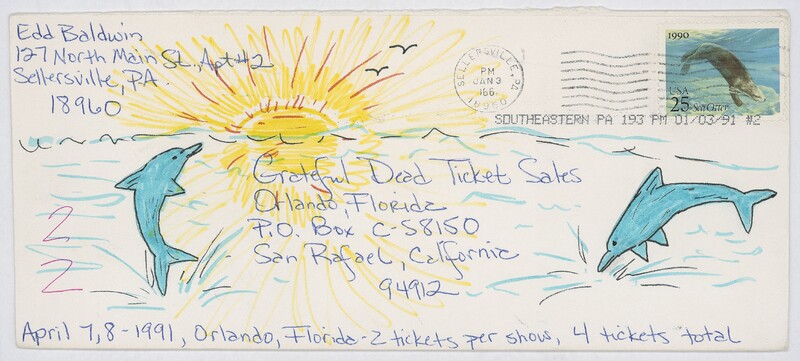 Edd Baldwin
127 North Main St., Apt #2
Sellersville, PA.
18960
SELLERSVILLE, PA
PM
JAN 3
18960
1990
USA
25 Sea Otter
SOUTHEASTERN PA 193 PM 01/03/91 #2
Grateful Dead Ticket Sales
Orlando, Florida
P.O. Box C-S8150
San Rafael, California
94912
2
2
April 7,8-1991, Orlando, Florida-2 tickets per show, 4 tickets total